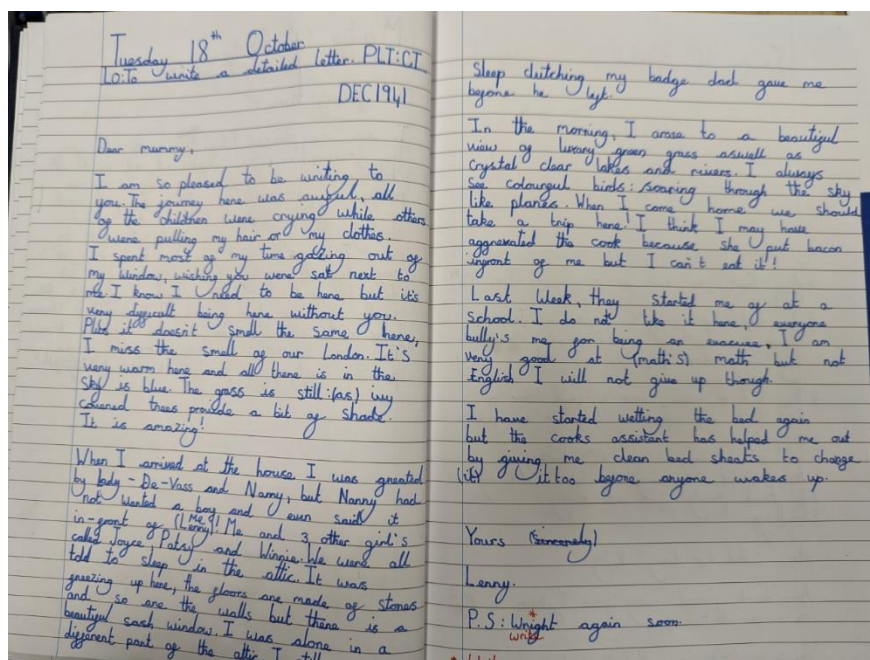 Tuesday 18th October
LO:To write a detailed letter. PLT:CI
DEC1941
Dear mummy,
I am so pleased to be writing to
you. The journey here was awful, all
of the children were crying while others
were pulling my hair or my clothes.
I spent most of my time gazing out of
my window, wishing you were sat next to
me. I know I need to be here but it's
very difficult being here without you.
Plus it doesn't smell the same here,
I miss the smell of our London. It's
very warm here and all there is in the
sky is blue. The grass is still: (as) ivy
covered trees provide a bit of shade.
It is amazing!
When I arrived at the house I was greated
by lady - De-Vass and Nanny, but Nanny had
not wanted a boy and even said it
in-front of (Lenny) Me! Me and 3 other girl's
called Joyce Patsy and Winnie. We were all
told to sleep in the attic. It was
freezing up here, the floors are made of stones
and so are the walls but there is a
beautiful sash window. I was alone in a
different part of the attic I still
Sleep clutching my badge dad gave me
before he left.
In the morning, I arose to a beautiful
view of luxary green grass aswell as
crystal clear lakes and rivers. I always
see colourful birds: soaring through the sky
like planes. When I come home we should
take a trip here! I think I may have
aggrevated the cook because she put bacon
infront of me but I can't eat it!
Last Week, they started me of at a
school. I do not like it here, everyone
bully's me for being an evacuee, I am
very good at (math's) math but not
English I will not give up though.
I have started wetting the bed again
but the cooks assistant has helped me out
by giving me clean bed sheats to change
(it) it too before anyone wakes up.
Yours (sincerely)
Lenny.
P.S: Wright* again soon.
write